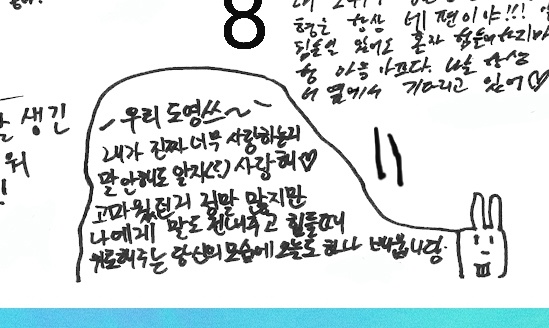 8
형은 항상 네 편이야!!!
힘든일 있어도 혼자
형 마음 아프다. 나는 항상
네 옆에서 기다리고 있어♡
잘 생긴
워
!
~우리 도영쓰~
내가 진짜 너무 사랑하는거
말 안해도 알지(?) 사랑해♡
고마웠던거 정말 많지만
나에게 말도 해주고 힘들때
위로해주는 당신의 모습에 오늘도 하나 배웁니당.